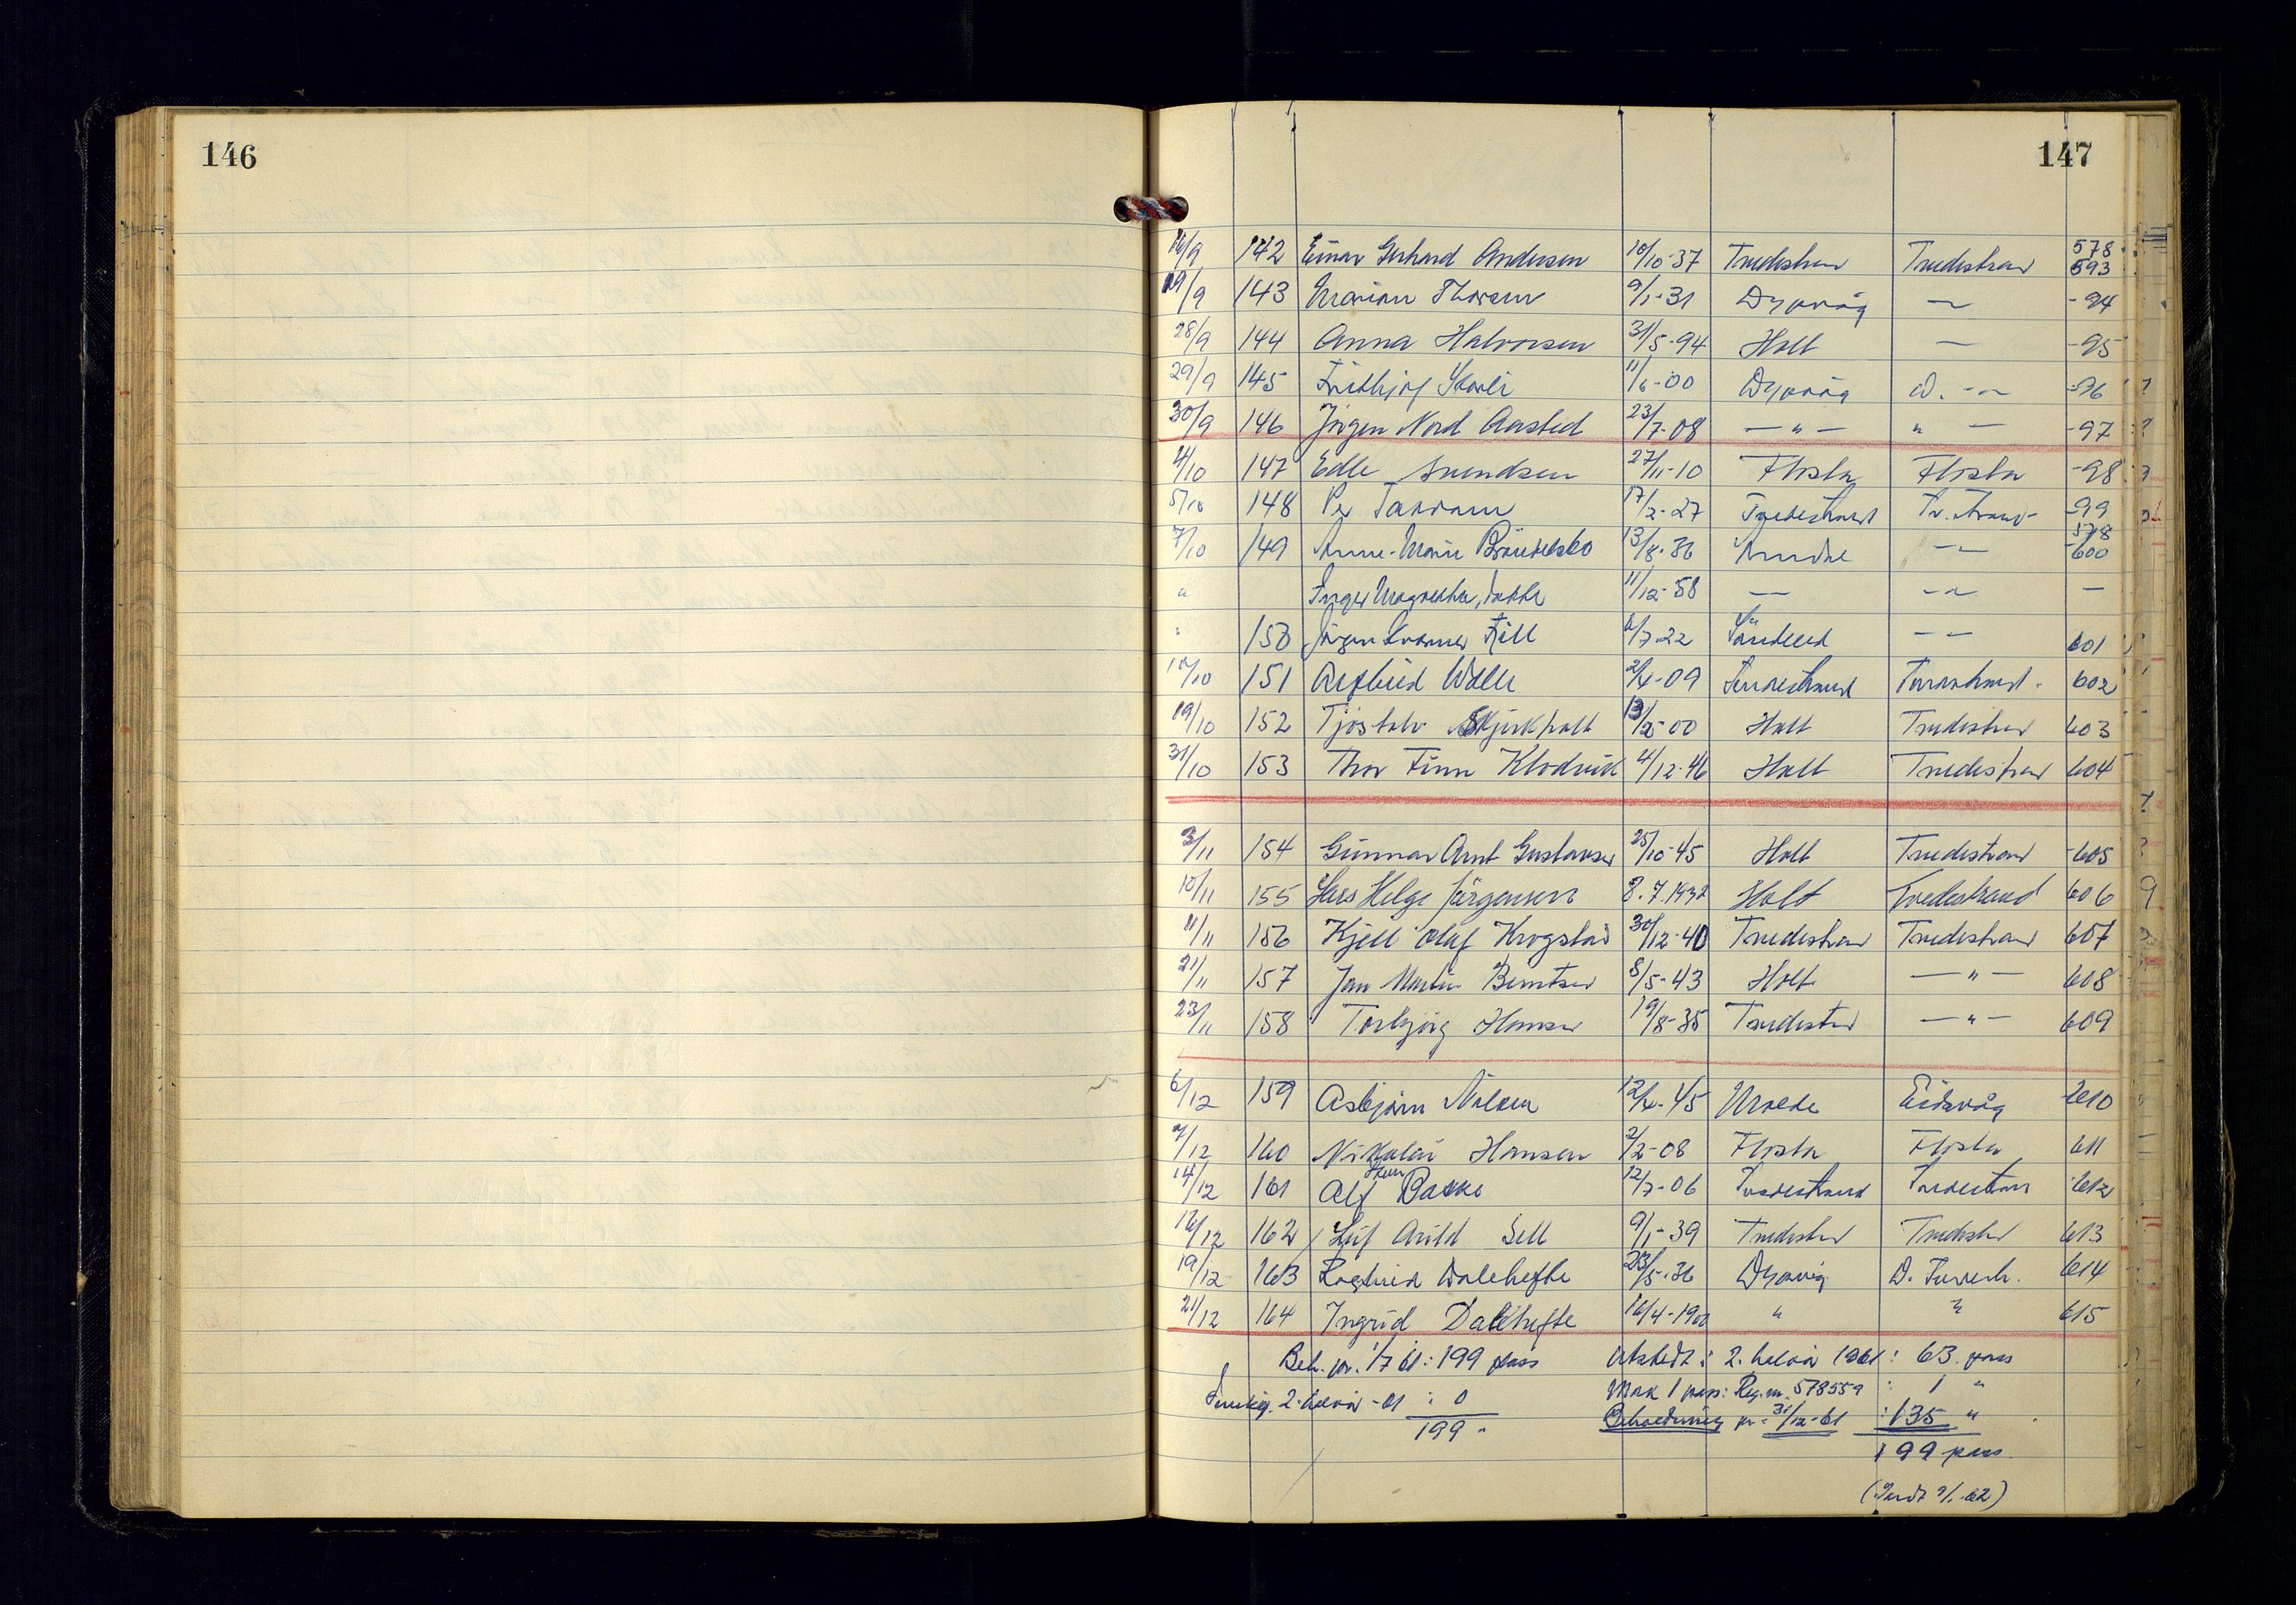 146
147
16/9 142 Einar Gerhard Andersen 10/10-37 Tvedestrand Tvedestrand 578 593
19/9 143 Marion Thorsen 9/1-31 Dypvåg — -94
28/9 144 Anna Halvorsen 31/5-94 Holt — -95
29/9 145 Fridthjof 11/6-00 Dypvåg D. -"- -96
30/9 146 Jörgen Nord Aasted 23/7-08 — " — " — -97
4/10 147 Edle Svendsen 27/11-10 Flosta Flosta -98
5/10 148 Per 17/2-27 Tvedestrand Tv.strand -99
7/10 149 Anne-Marie 13/8-36 Arendal -"- 578 -600
" Inger Margrethe, datter 11/12-58 -"- -"- —
" 150 Jörgen 6/7-22 Söndeled -"- 601
151 2/4-09 Tvedestrand Tvedestrand 602
19/10 152 Tjöstolv 13/2-00 Holt Tvedestrand 603
31/10 153 Thor Finn Klodvik 4/12-46 Holt Tvedestrand 604
3/11 154 Gunnar Arnt Gustavsen 25/10-45 Holt Tvedestrand -605
10/11 155 Lars Helge Jörgensen 8.7.1932 Holt Tvedestrand 606
11/11 156 Kjell Olaf Krogstad 30/12-40 Tvedestrand Tvedestrand 607
21/11 157 Jan Martin Berntsen 8/5-43 Holt — " — 608
23/11 158 Torbjörg Hansen 19/8-35 Tvedestrand — " — 609
6/12 159 Asbjörn Nilsen 12/4-45 Molde Eidsvåg -610
7/12 160 Nikolai Hansen 2/2-08 Flosta Flosta 611
14/12 161 Alf Bakke 12/7-06 Tvedestrand Tvedestrand 612
16/12 162 Leif Arild Sell 9/1-39 Tvedestrand Tvedestrand 613
19/12 163 Ragnhild Dalehefte 23/5-36 Dypvåg D. Tvedestr. 614
21/12 164 Ingrid Dalehefte 16/4-1902 " " 615
Beh. pr. 1/7 61: 199 pass Utstedt i 2. halvår 1961: 63 pass
2. halvår -61 : 0 Mak 1 pass: Reg.nr. 578559 : 1 "
199 " Beholdning pr. 31/12-61 : 135 "
199 pass.
(Sendt 9/1-62)